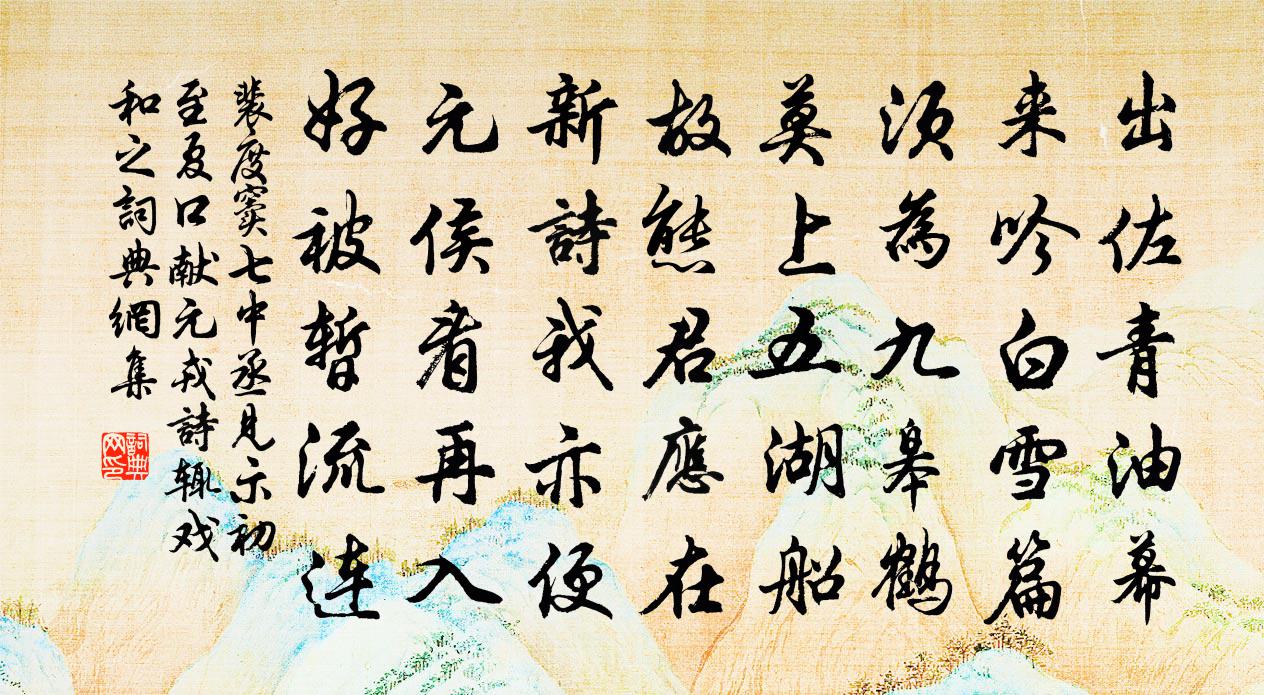 出佐青油幕
来吟白雪篇
须為九皋鶴
莫上五湖船
故態君應在
新詩我亦便
元侯看再入
好被暫流連
裴度窦七中丞見示初
至夏口献元戎詩辄戏
和之詞典網集
詞典网印